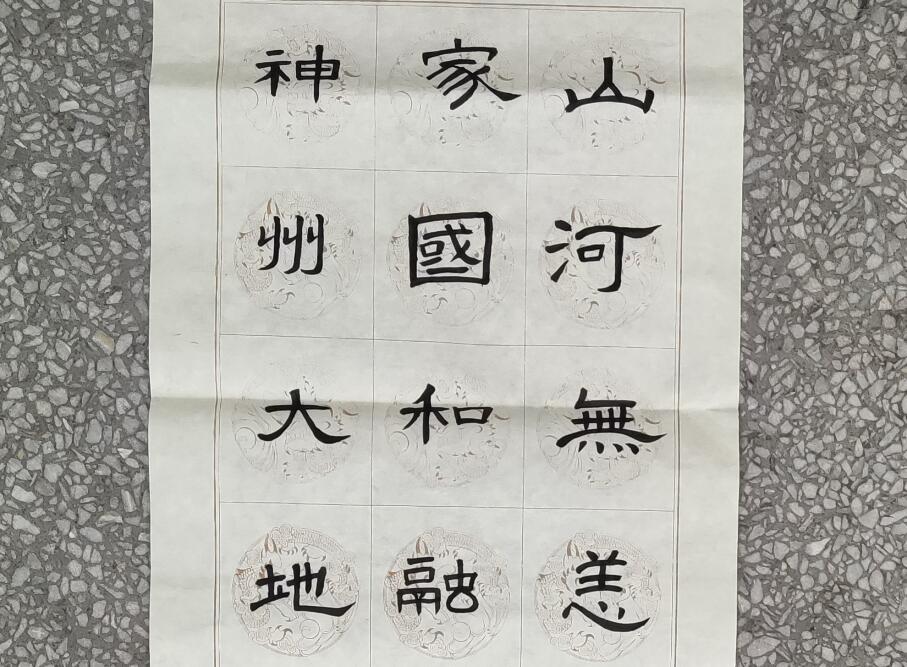 山河無恙
家國和融
神州大地